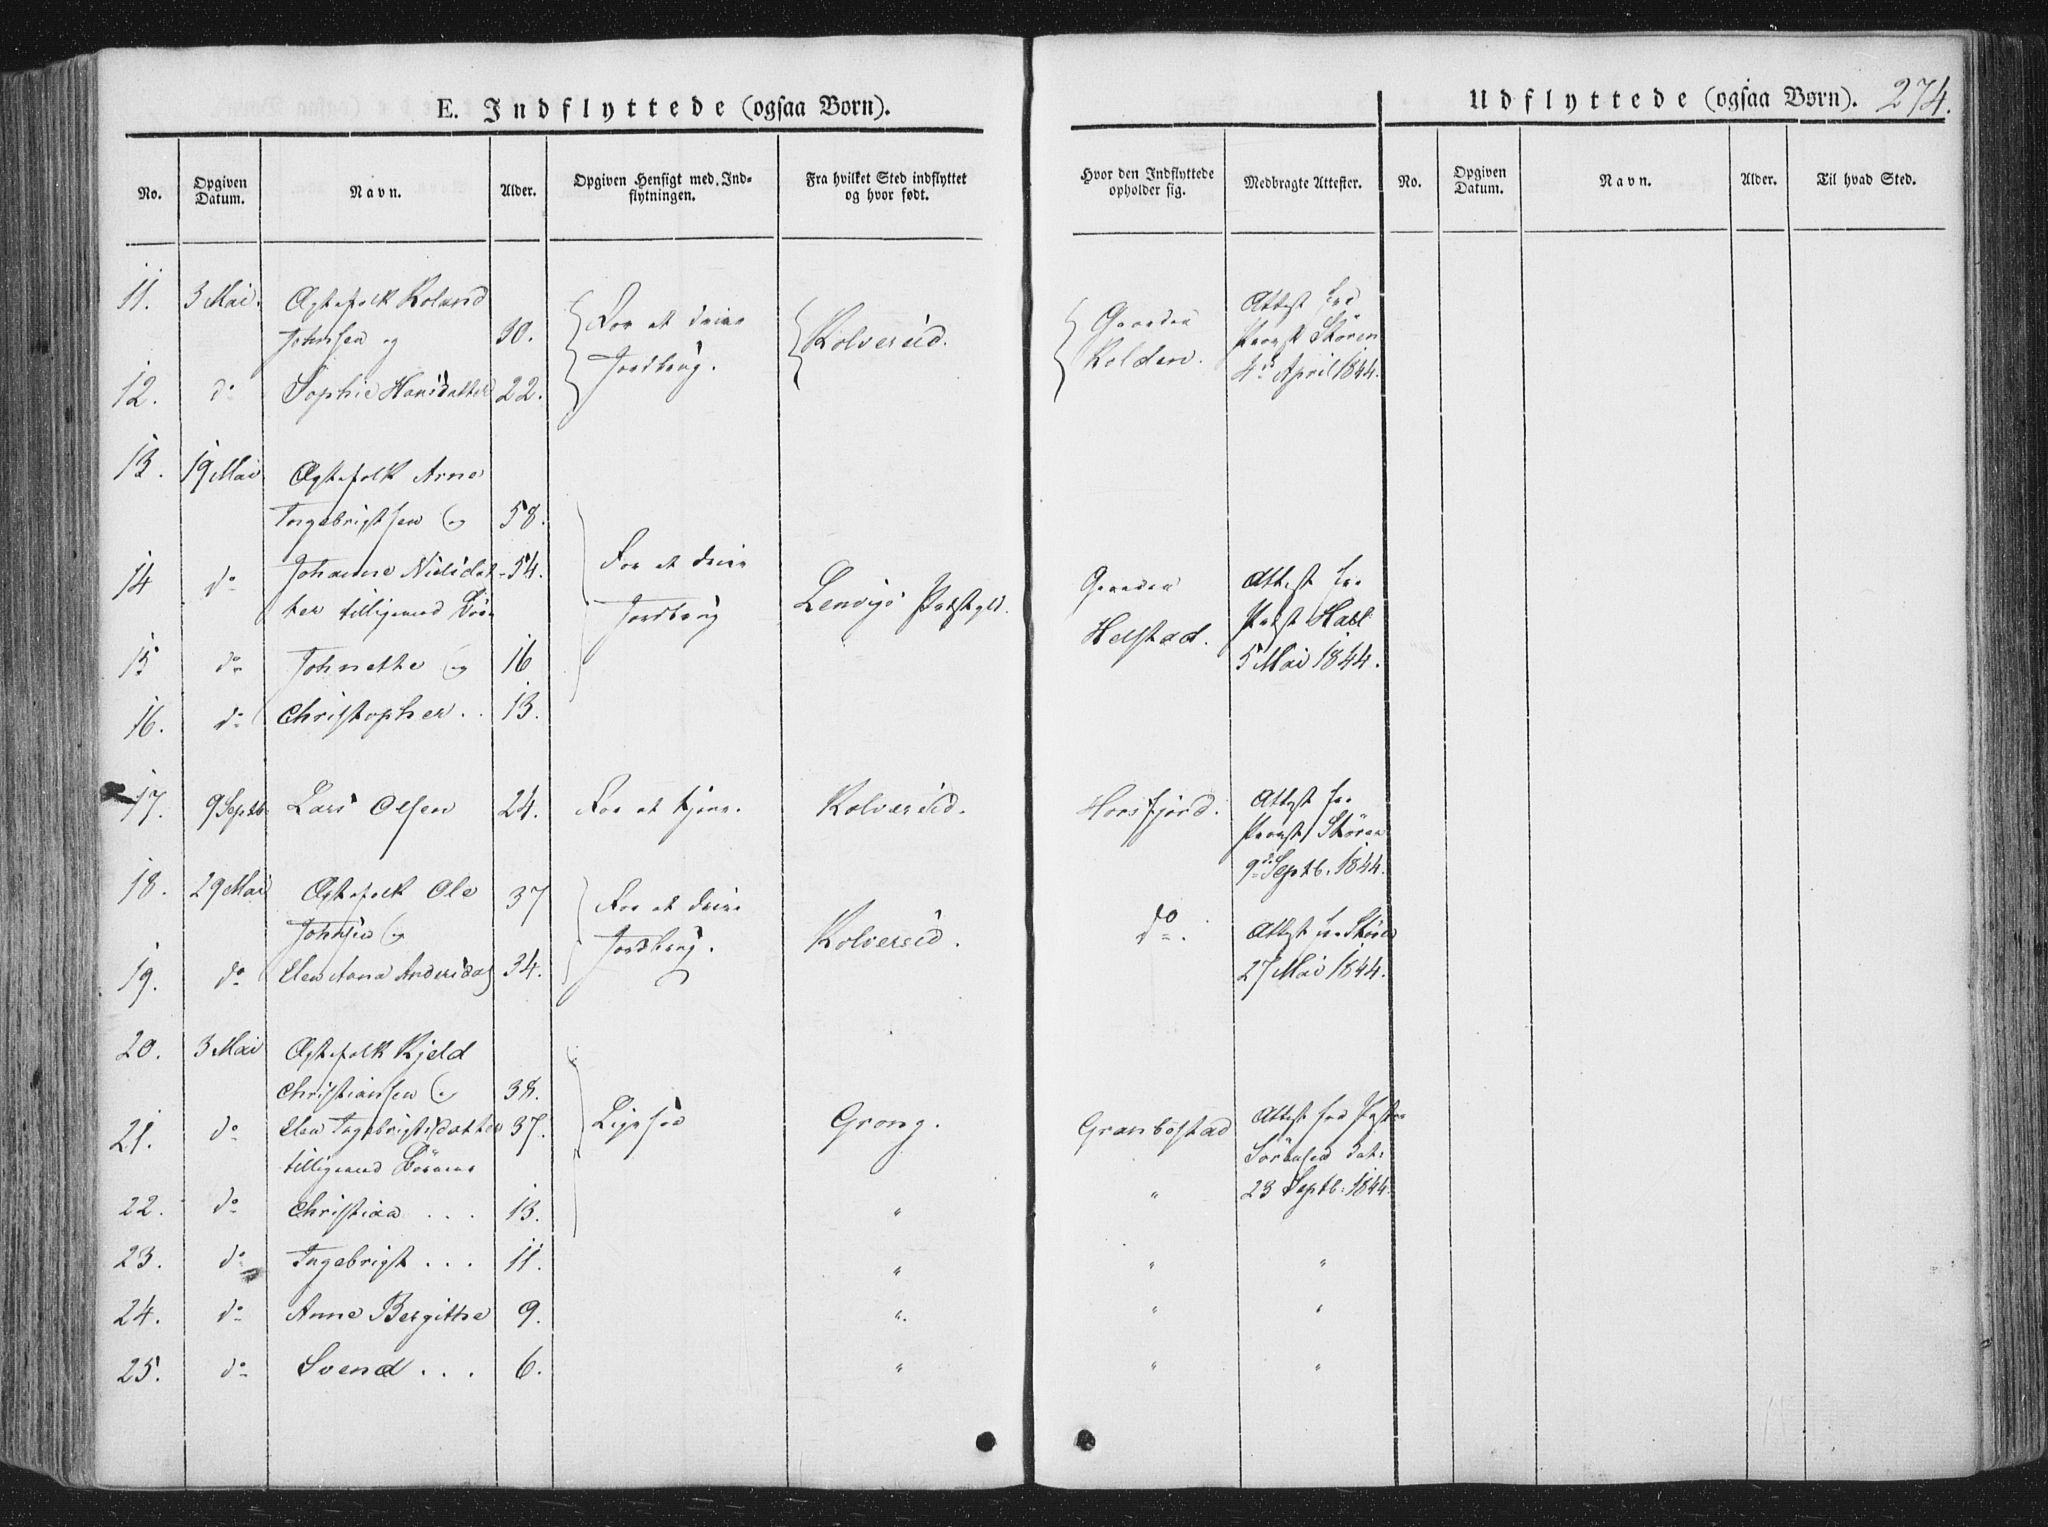 E. Indflyttede (ogsaa Børn).
Udflyttede (ogsaa Børn). 274.
No. Opgiven Datum. Navn. Alder. Opgiven Hensigt med Ind-flytningen. Fra hvilket Sted indflyttet og hvor født. Hvor den Indflyttede opholder sig. Medbragte Attester. No. Opgiven Datum. Navn. Alder. Til hvad Sted.
11. 3 Mai. Ægtefolk Roland
Johnsen og 30. For at drive Jordbrug. Kolvereid. Gaarden Kolden. Attest fra Provst Stören 4de April 1844.
12. do Sophie Hansdatter 22.
13. 19 Mai Ægtefolk Arne
Ingebrigtsen og 58.
14 do Johanne Nielsdat- 54. For at drive Jordbrug Lenvigs Præstgld. Gaarden Helstad. Attest fra Præst Hall 5 Mai 1844.
ter tilligemed Børn
15 do Johnethe og 16
16. do Christopher . . 13.
17. 9 Septb. Lars Olsen 24. For at tjene. Kolvereid. Horsfjord. Attest fra Provst Stören 9de Septb. 1844.
18. 29 Mai Ægtefolk Ole 37
Johnsen og For at drive Jordbrug. Kolvereid. do. Attest fra Stören 27 Mai 1844.
19. do Elen Anna Andersda 34.
20. 3 Mai Ægtefolk Kjeld
Christiansen og 38.
21. do Elen Ingebrigtsdatter 37. Ligesaa Grong. Granbostad Attest fra Pastor Sörensen dat: 23 Septb. 1844.
tilligemed Børnene
22. do Christian . . . 13. " "
23. do Ingebrigt . . . 11. " " "
24. do Anne Bergitthe 9. " " "
25. do Svend . . . 6. " " "